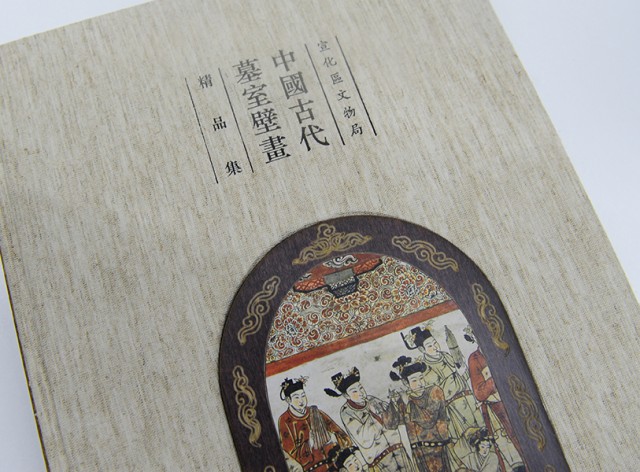 宣化區文物局
中國古代
墓室壁畫
精品集